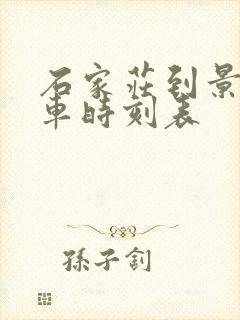 石家莊到景
車時刻表
孫子釗